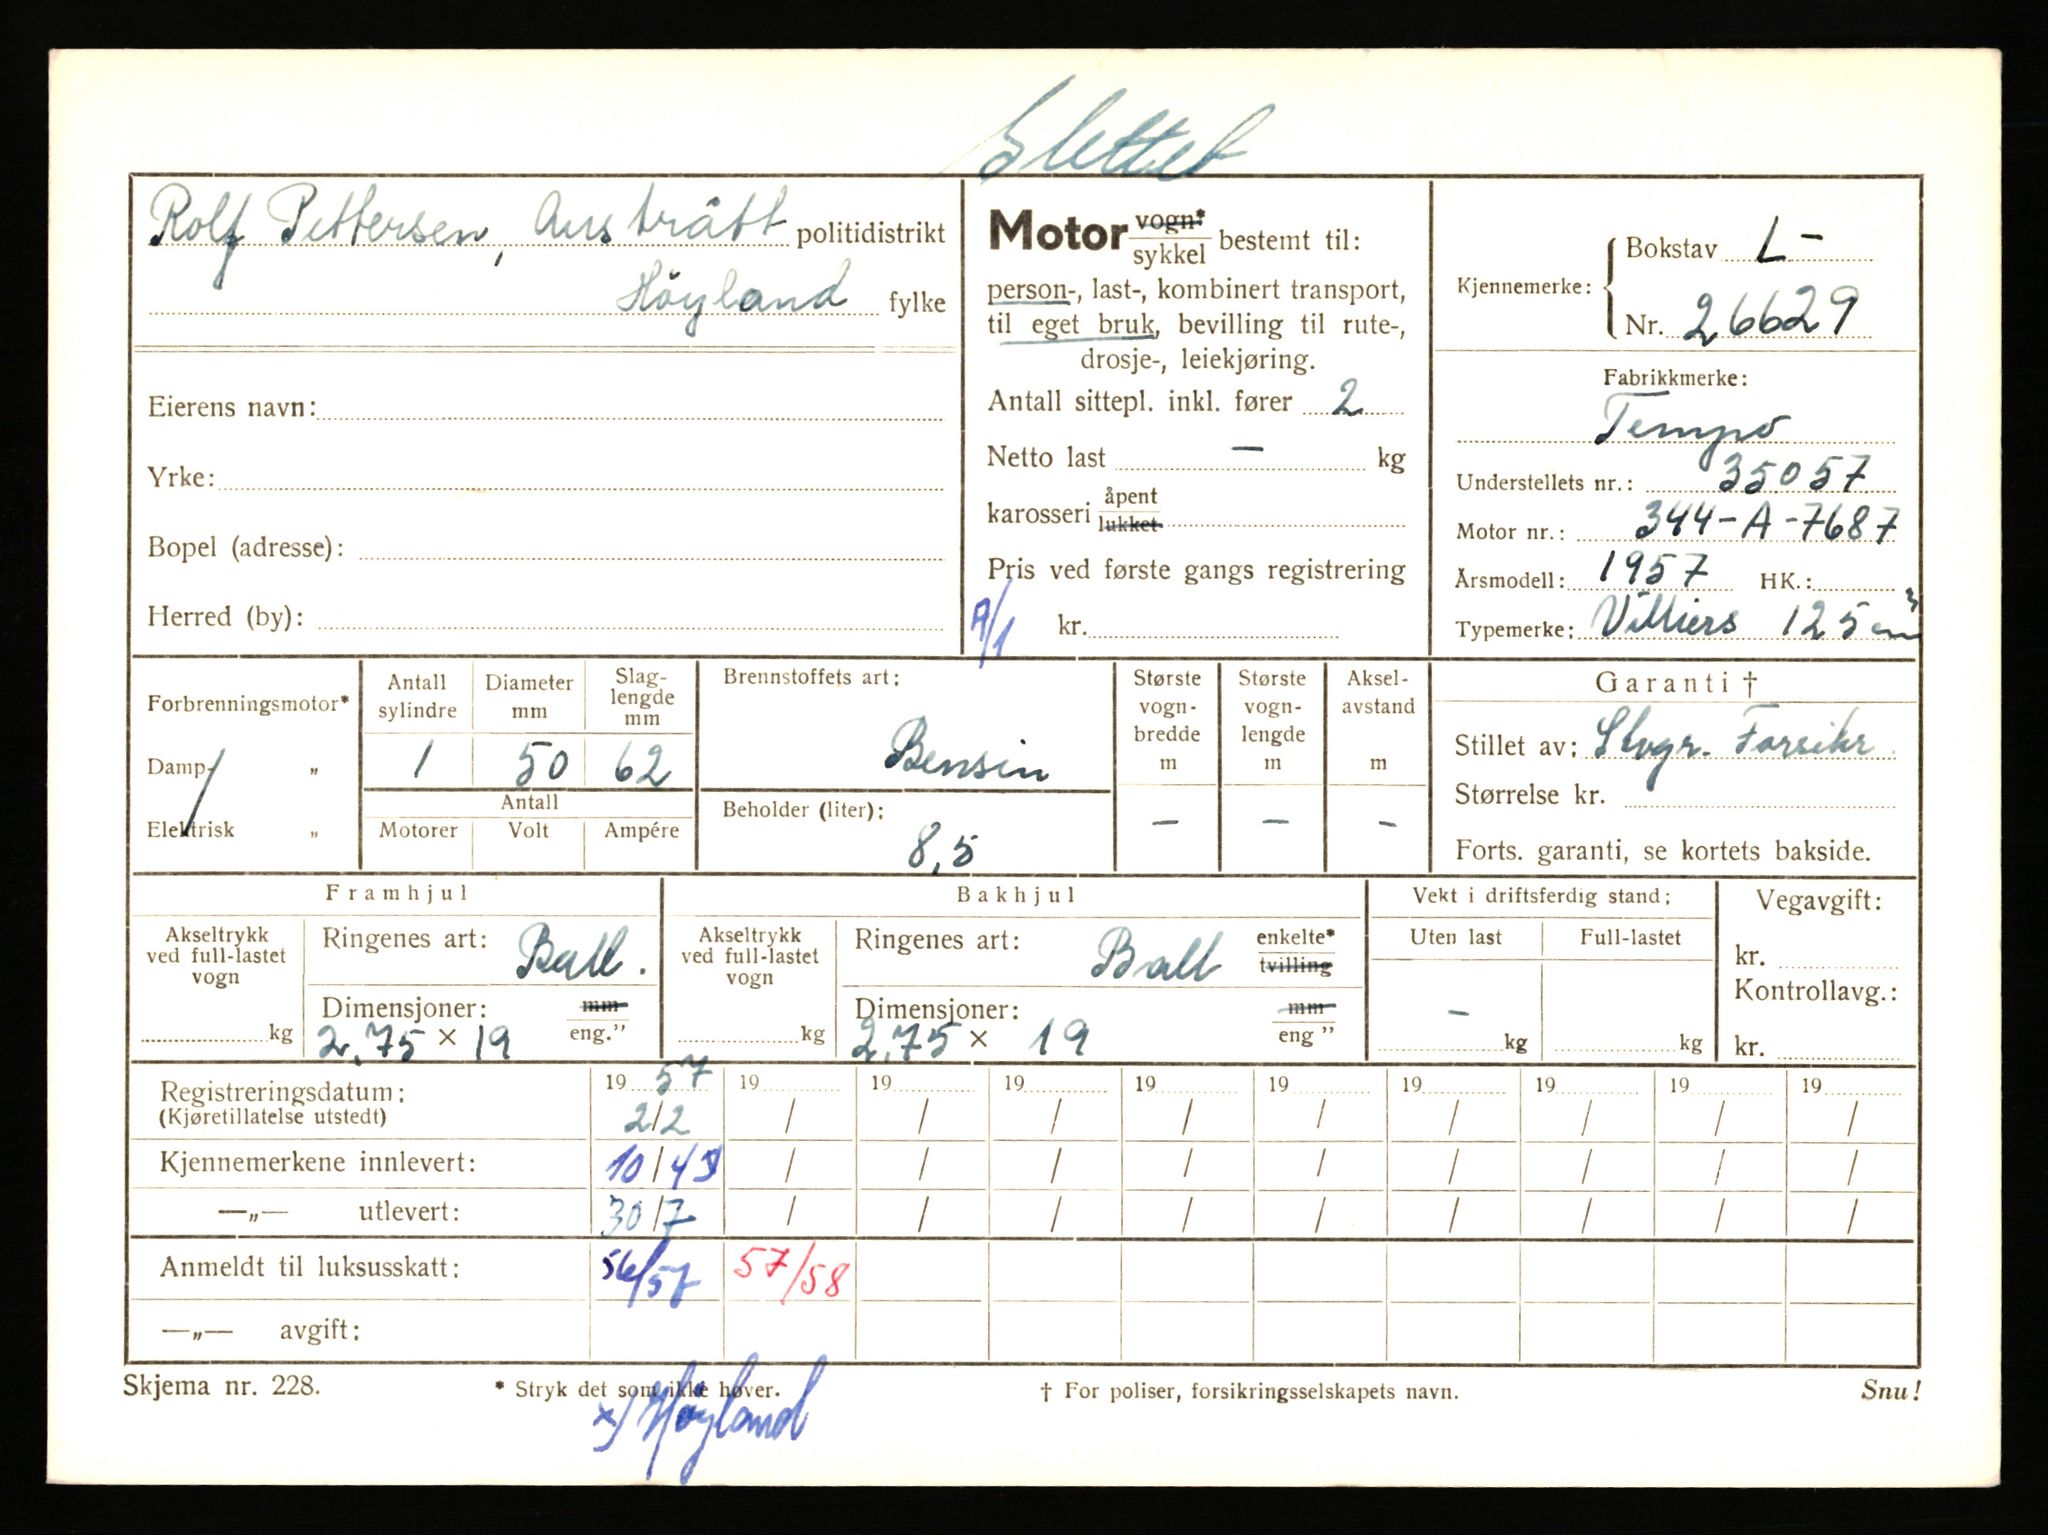 Slettet
Rolf Pettersen, Austrått politidistrikt
Höyland fylke
Eierens navn:
Yrke:
Bopel (adresse):
Herred (by):
Motor vogn* / sykkel bestemt til:
person-, last-, kombinert transport,
til eget bruk, bevilling til rute-,
drosje-, leiekjøring.
Antall sittepl. inkl. fører 2
Netto last — kg
karosseri åpent / lukket
Pris ved første gangs registrering
A/1 kr.
Kjennemerke: Bokstav L-
Nr. 26629
Fabrikkmerke:
Tempo
Understellets nr.: 35057
Motor nr.: 344-A-7687
Årsmodell: 1957 HK.:
Typemerke: Villiers 125 cm³
Forbrenningsmotor*
Damp- „
Elektrisk „
Antall sylindre
Diameter mm
Slag-
lengde
mm
1 50 62
Antall
Motorer Volt Ampére
Brennstoffets art:
Bensin
Beholder (liter):
8,5
Største
vogn-
bredde
m
—
Største
vogn-
lengde
m
—
Aksel-
avstand
m
-
Garanti †
Stillet av: Stvgr. Forsikr.
Størrelse kr.
Forts. garanti, se kortets bakside.
Framhjul
Akseltrykk
ved full-lastet
vogn
kg
Ringenes art: Ball.
Dimensjoner: mm / eng.”
2.75 × 19
Bakhjul
Akseltrykk
ved full-lastet
vogn
kg
Ringenes art: Ball enkelte* / tvilling
Dimensjoner: mm / eng”
2.75 × 19
Vekt i driftsferdig stand:
Uten last Full-lastet
-
kg kg
Vegavgift:
kr.
Kontrollavg.:
kr.
Registreringsdatum: 19 57 19 19 19 19 19 19 19 19 19
(Kjøretillatelse utstedt) 2/2 / / / / / / / / /
Kjennemerkene innlevert: 10/4 / / / / / / / / /
—„— utlevert: 30/7 / / / / / / / / /
Anmeldt til luksusskatt: 56/57 57/58
—„— avgift:
Skjema nr. 228. * Stryk det som ikke høver. † For poliser, forsikringsselskapets navn. Snu!
x) Høyland